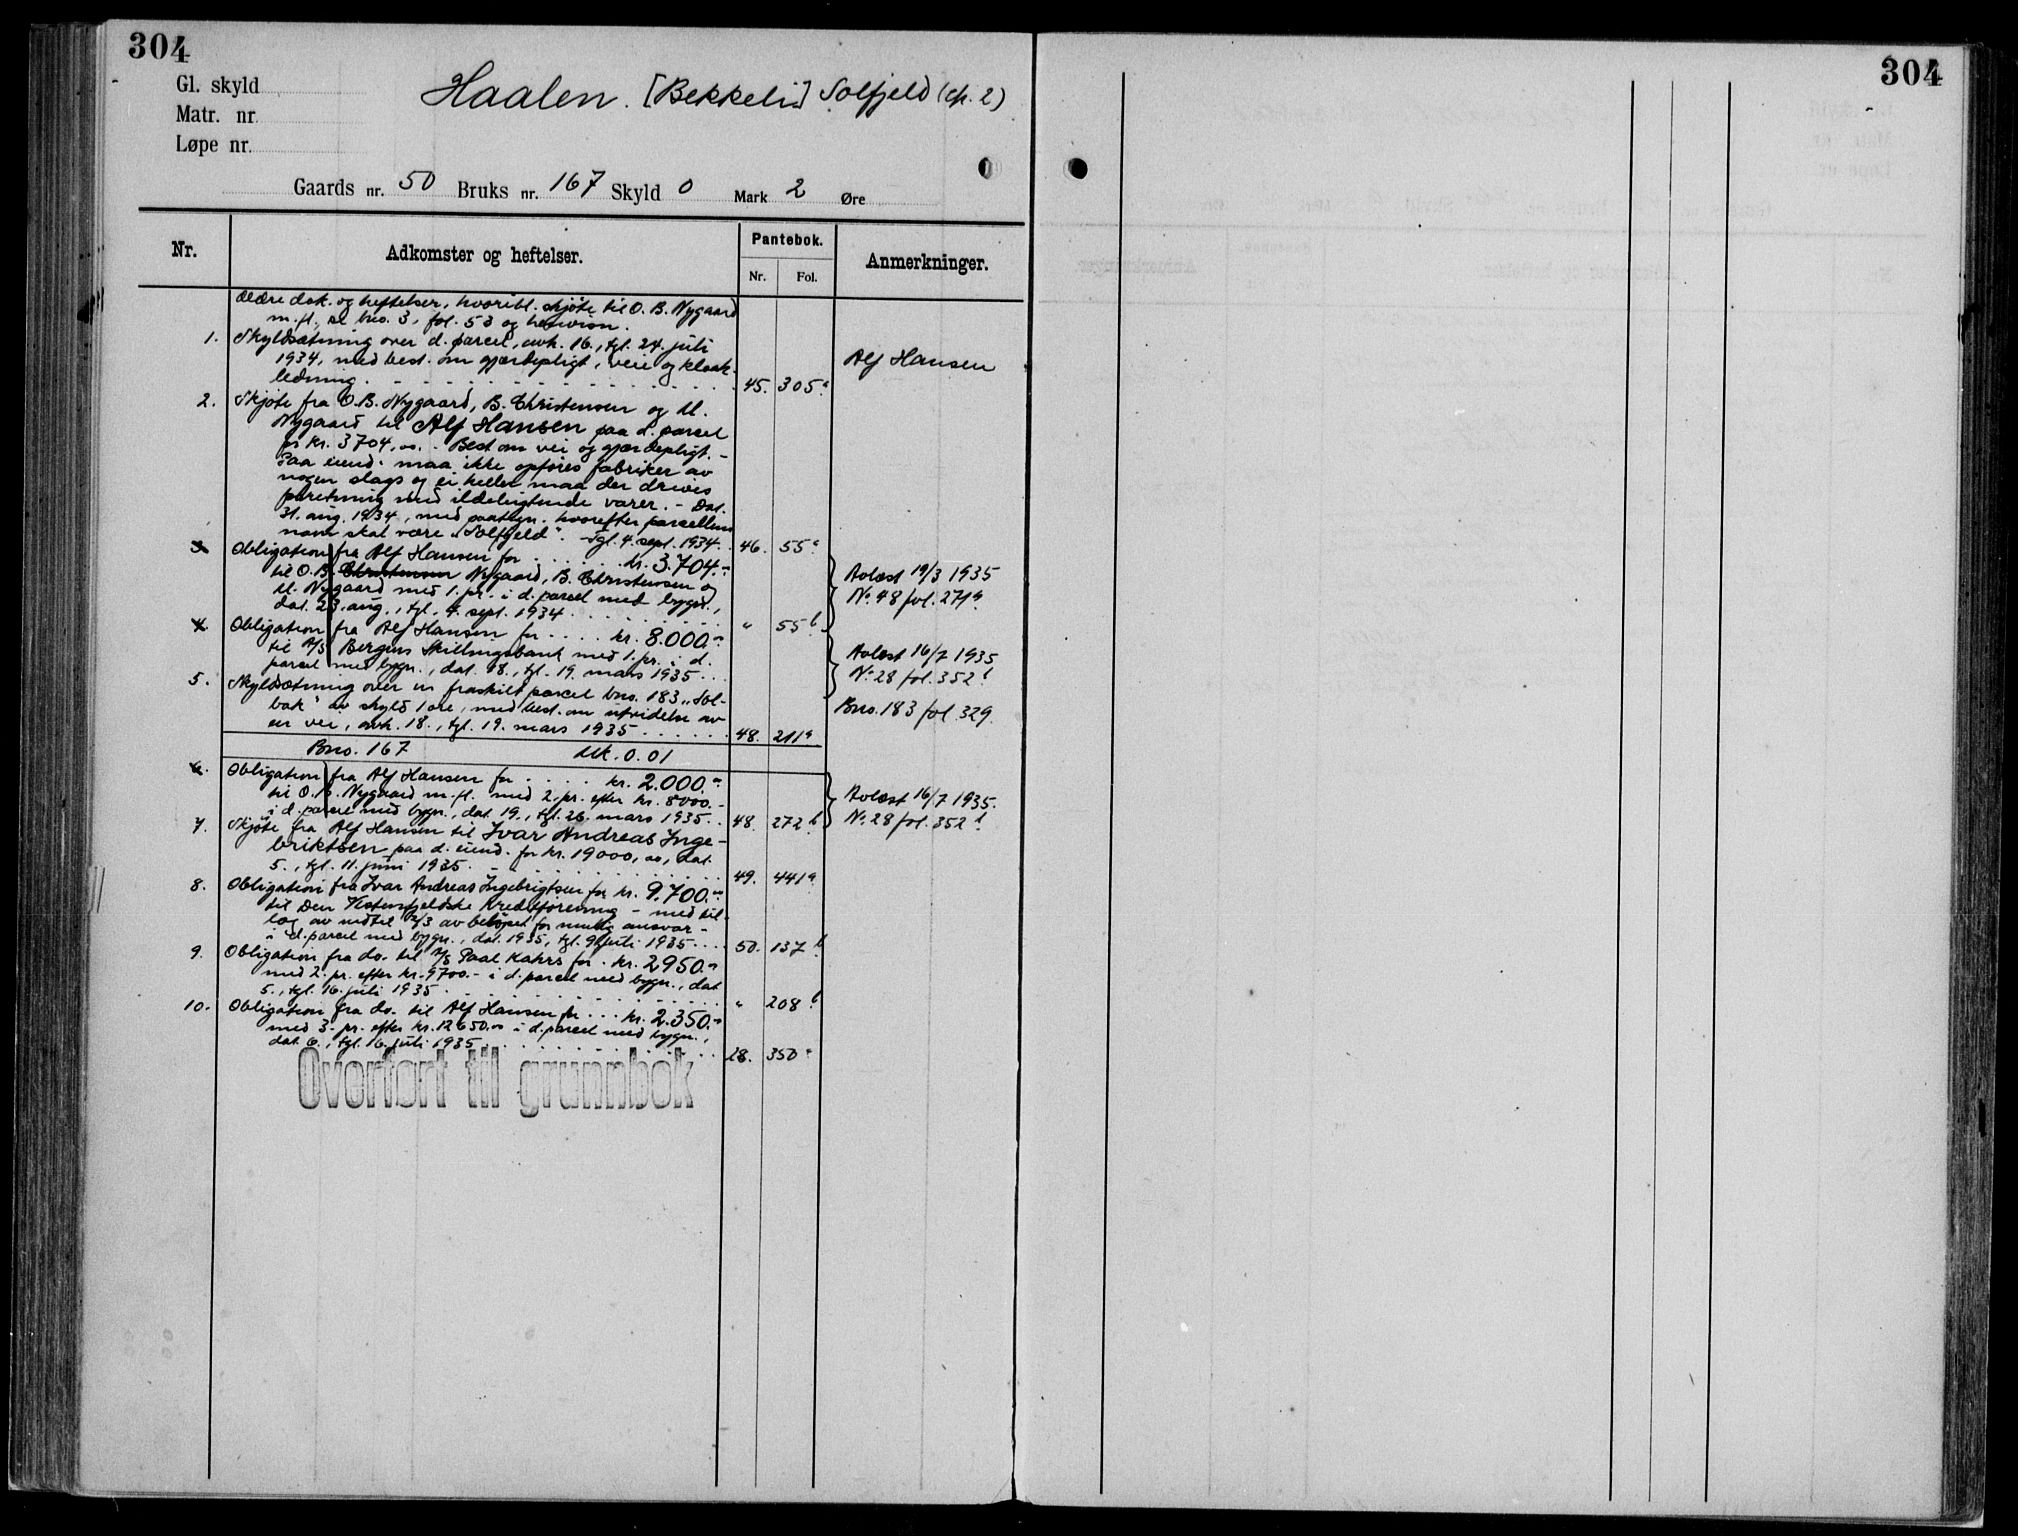 304
304
Gl. skyld
Matr. nr.
Løpe nr.
Haalen. [Bekkeli] Solfjeld (cfr. 2)
Gaards nr. 50 Bruks nr. 167 Skyld 0 Mark 2 Øre
Nr.
Adkomster og heftelser.
Pantebok.
Nr. Fol.
Anmerkninger.
Ældre dok. og heftelser, hvoribl. skjøte til O. B. Nygaard
m. fl., se bno. 3, fol. 53 og henvisn.
1. Skyldsætning over d. parcel, avh. 16., tgl. 24. juli
1934, med best. om gjærdepligt, veie og kloak-
ledning. 45. 305a
Alf Hansen
2. Skjøte fra O. B. Nygaard, B. Christensen og M.
Nygaard til Alf Hansen paa d. parcel
for kr. 3704,oo. - Best. om vei og gjærdepligt. -
Paa eiend. maa ikke opføres fabriker av
nogen slags og ei heller maa der drives
forretning med ildelugtende varer. - Dat.
31. aug. 1934, med paategn. hvorefter parcellens
navn skal være "Solfjeld". Tgl. 4. sept. 1934. 46. 55a
3. Obligation fra Alf Hansen for kr. 3.704.-
til O. B. Christensen Nygaard, B. Christensen og
M. Nygaard med 1. pr. i d. parcel med bygn.,
dat. 23. aug., tgl. 4. sept. 1934. " 55b
Avlæst 19/3 1935
No. 48 fol. 271a
4. Obligation fra Alf Hansen for kr. 8.000.-
til A/S Bergens Skillingsbank med 1. pr. i d.
parcel med bygn., dat. 18., tgl. 19. mars 1935
Avlæst 16/7 1935
No. 28 fol. 352b
5. Skyldsætning over en fraskilt parcel bno. 183 "Sol-
bak" av skyld 1 øre, med best. om utvidelse av
en vei, avh. 18., tgl. 19. mars 1935 48. 211a
Bno. 183 fol. 329.
Bno. 167 Mk. 0.01
6. Obligation fra Alf Hansen for kr. 2.000.-
til O. B. Nygaard m. fl. med 2. pr. efter kr. 8000.-
i d. parcel med bygn., dat. 19., tgl. 26. mars 1935 48. 272b
Avlæst 16/7 1935.
No. 28 fol. 352b
7. Skjøte fra Alf Hansen til Ivar Andreas Inge-
briktsen paa d. eiend. for kr. 19000,oo, dat.
5., tgl. 11. juni 1935. 49. 441a
8. Obligation fra Ivar Andreas Ingebrigtsen for kr. 9.700.-
til Den Vestenfjeldske Kreditforening - med til-
læg av indtil 2/3 av beløpet for mulig ansvar -
i d. parcel med bygn., dat. 1935, tgl. 9. juli 1935 50. 137b
9. Obligation fra do. til A/S Paal Kahrs for kr. 2950.-
med 2. pr. efter kr. 9700.- i d. parcel med bygn., dat.
5., tgl. 16. juli 1935 " 208b
10. Obligation fra do. til Alf Hansen for kr. 2.350.-
med 3. pr. efter kr. 12650.- i d. parcel med bygn.,
dat. 6., tgl. 16. juli 1935 28. 350a
Overført til grunnbok